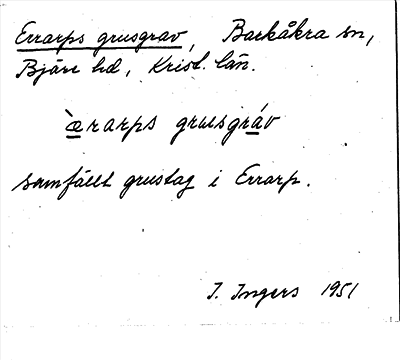 Errarps grusgrav, Barkåkra sn,
Bjäre hd, Krist. län.
æ̀rarps grusgráv
samfällt grustag i Errarp.
I. Ingers 1951